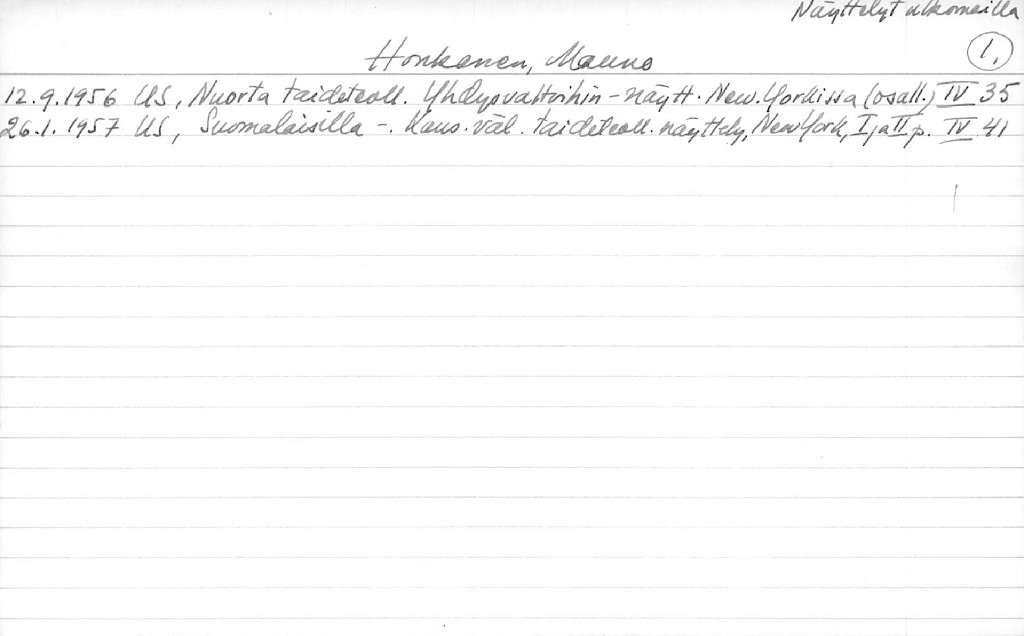 Näyttelyt ulkomailla
1.
Honkanen, Mauno
12.9.1956 US, Nuorta taideteoll. Yhdysvaltoihin - näytt. New Yorkissa (osall.) IV 35
26.1.1957 US, Suomalaisilla -. Kans. väl. taideteoll. näyttely, New York, I ja II p. IV 41